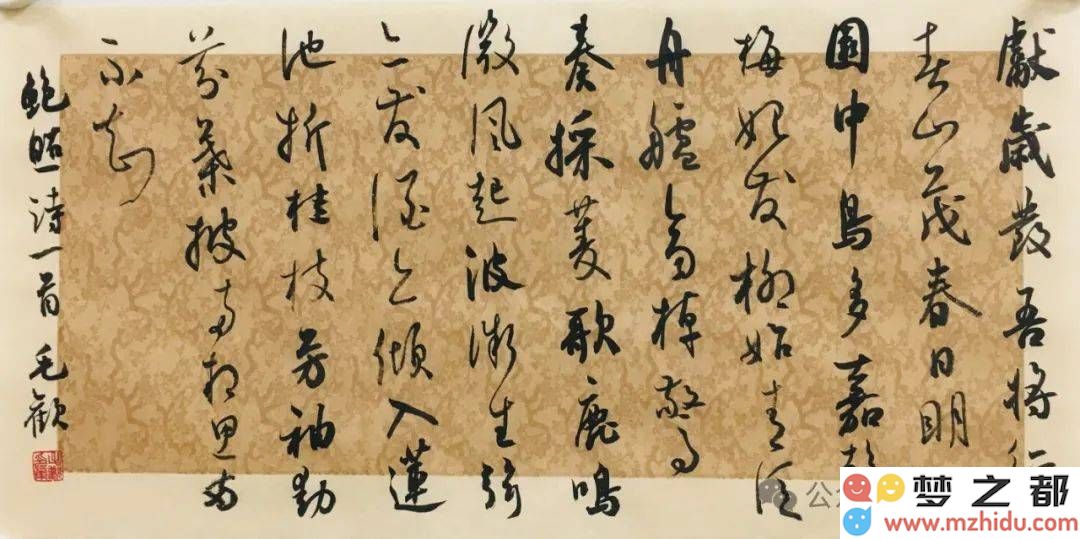 獻歲發吾将行
春山茂春日明
園中鳥多嘉
梅始发柳始青泛
舟艫齐棹驚
奏採菱歌鹿鳴
微風起波微生弦
亦发酒亦傾入蓮
池折桂枝芳袖動
芬葉披两相思两
不知
鮑照詩一首 毛歡
公
梦之都
www.mzhidu.com